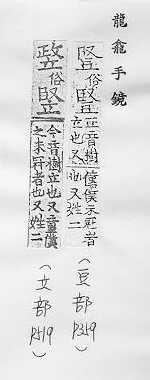 龍龕手鏡
竪俗豎正音樹立也又僮僕未冠者也又姓二
(豆部P359)
竪俗竪今音樹立也又童僕
之未冠者也又姓二
(立部P519)